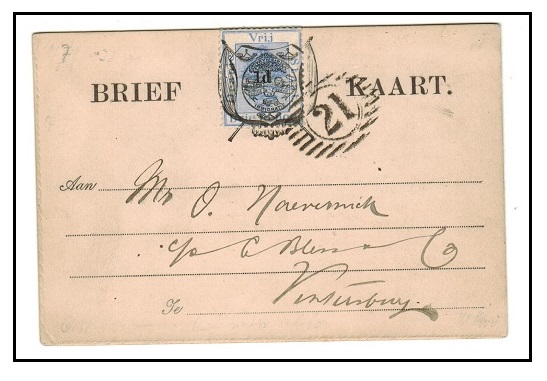 7
Vrij
1d
BRIEF KAART.
21
Aan Mr O.
c/o E Bless & Co
Te Ventersburg